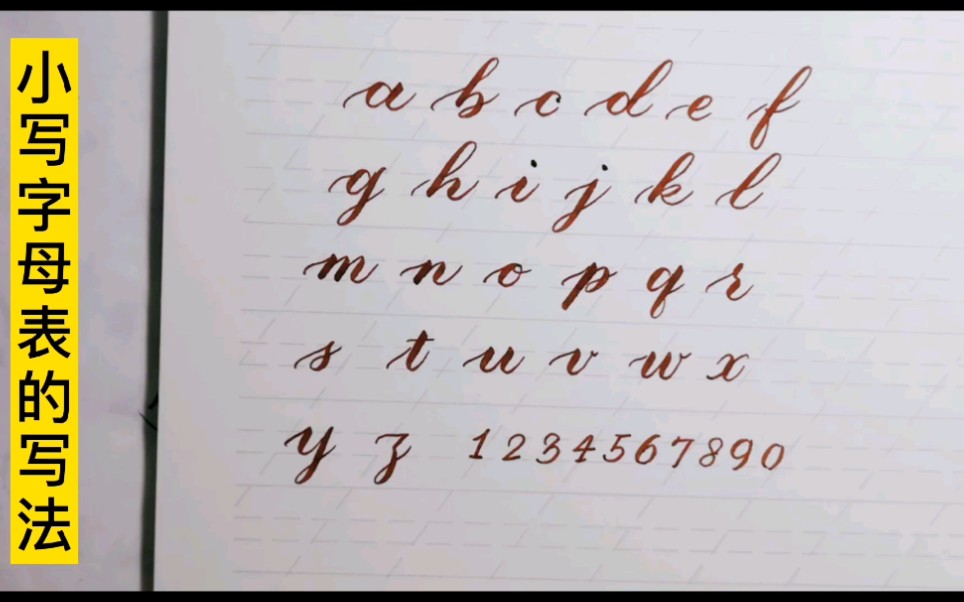 小写字母表的写法
a b c d e f
g h i j k l
m n o p q r
s t u v w x
y z 1234567890